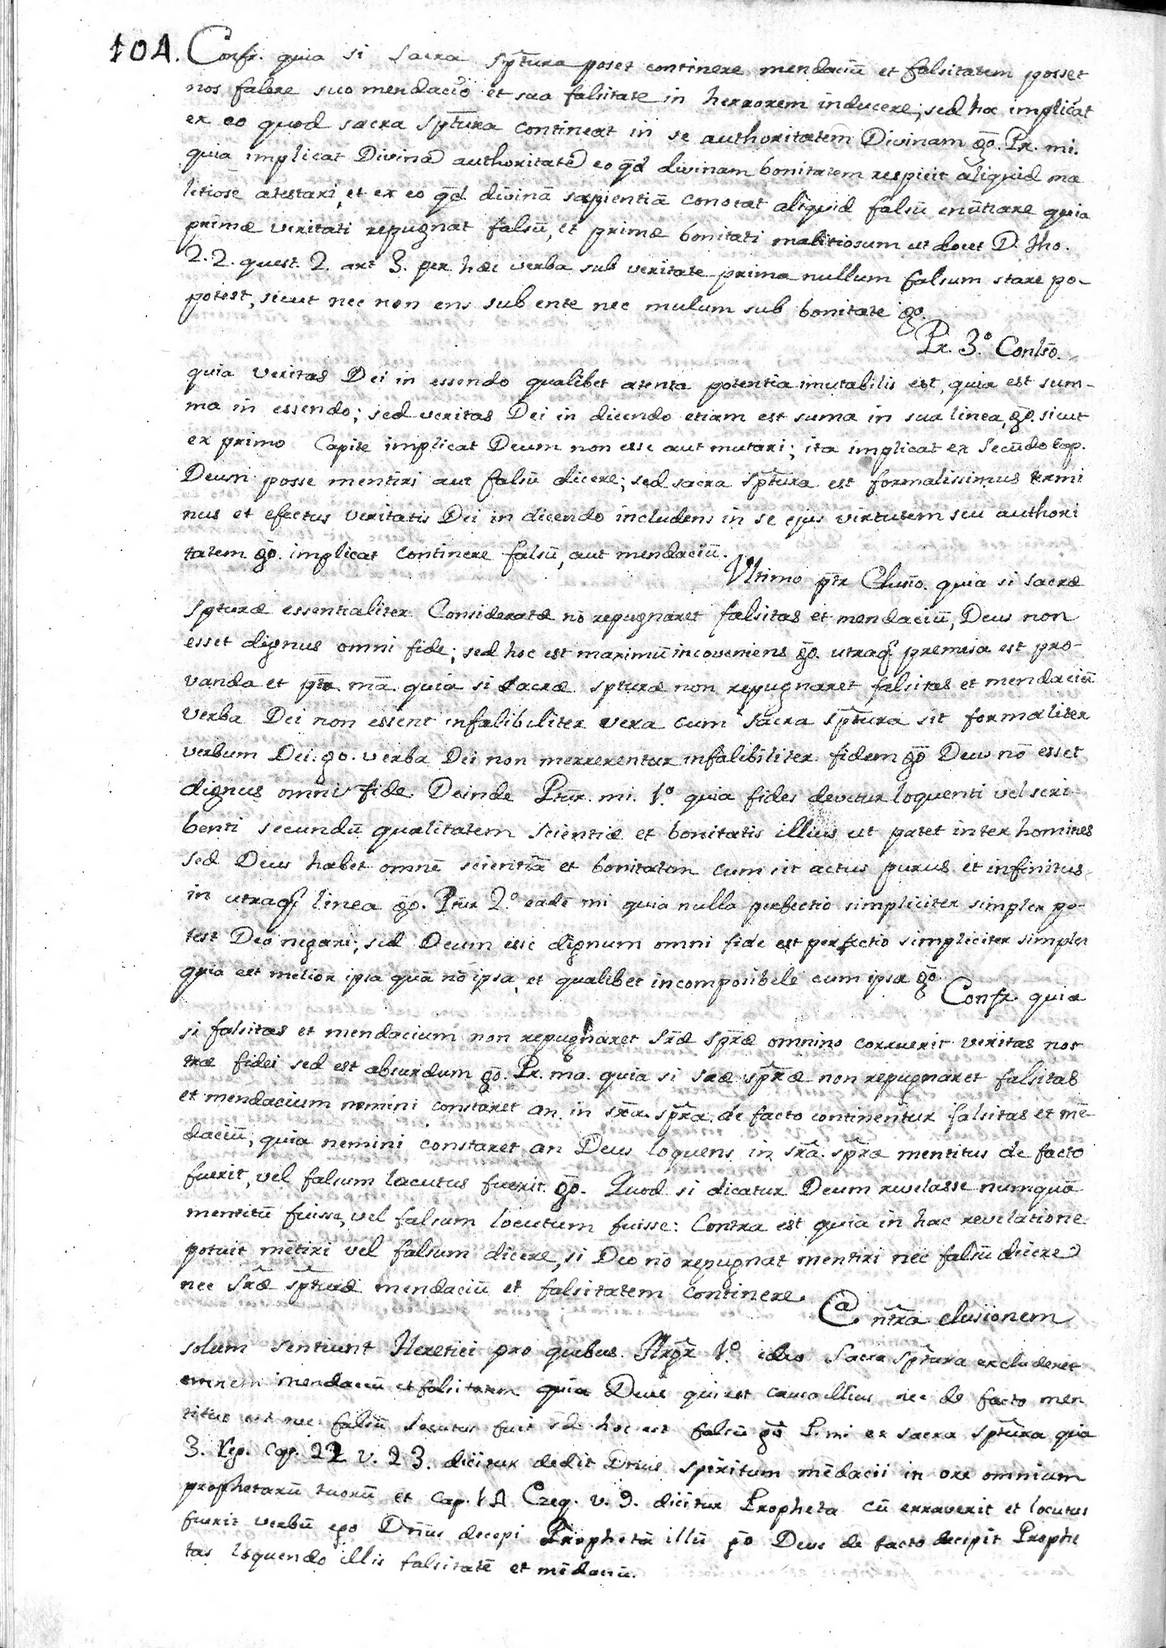 104. Confr. quia si sacra sptura poset continere mendaciū et falsitatem posset
nos falere suo mendacio et sua falsitate in herrorem inducere; sed hoc implicat
ex eo quod sacra sptura contineat in se authoritatem Divinam go. Pr. mi.
quia implicat Divinā authoritatē eo qd divinam bonitatem respicit aliquid ma
litiose atestari, et ex eo qd divinā sapientiā conotat aliquid falsū enūtiare quia
primæ veritati repugnat falsū, et primæ bonitati malitiosum ut docet D. Tho.
2. 2. quest. 2. art 3. per hæc verba sub veritate prima nullum falsum stare po-
potest, sicut nec non ens sub ente nec mulum sub bonitate go.
Pr. 3.º Conlsō.
quia veritas Dei in essendo qualibet atenta potentia imutabilis est, quia est sum-
ma in essendo; sed veritas Dei in dicendo etiam est suma in sua linea, go. sicut
ex primo Capite implicat Deum non esse aut mutari; ita implicat ex Secūdo cap.
Deum posse mentiri aut falsū dicere; sed sacra sptura est formalissimus termi
nus et efectus veritatis Dei in dicendo includens in se ejus virtutem seu authori
tatem go. implicat continere falsū, aut mendaciū.
Vltimo ptr Clusio. quia si sacræ
spturæ essentialiter Consideratæ nō repugnaret falsitas et mendaciū, Deus non
esset dignus omni fide; sed hoc est maximū incoveniens go. utraq premisa est pro-
vanda et ptr mā. quia si sacræ spturæ non repugnaret falsitas et mendaciū
verba Dei non essent infalibiliter vera cum sacra sptura sit formaliter
verbum Dei. go. verba Dei non merrerentur infalibiliter fidem go Deus nō esset
dignus omni fide. Deinde Ptur. mi. 1.º quia fides devetur loquenti vel scri-
benti secundū qualitatem scientiæ et bonitatis illius ut patet inter homines
sed Deus habet omnē scientiā et bonitatem cum sit actus purus et infinitus
in utraq linea go. Ptur 2.º eadē mi quia nulla perfectio simpliciter simplex po-
test Deo negari; sed Deum esse dignum omni fide est perfectio simpliciter simplex
quia est melior ipsa quā nō ipsa, et qualibet incomposibele cum ipsa go.
Confr. quia
si falsitas et mendacium non repugnaret sræ spræ omnino corruerit veritas nos
træ fidei sed est absurdum go. Pr. ma. quia si sræ spræ non repugnaret falsitas
et mendacium nemini constaret an in sra. spra. de facto continentur falsitas et mē-
daciū; quia nemini constaret an Deus loquens in sra. spra mentitus de facto
fuerit, vel falsum locutus fuerit. go. Quod si dicatur Deum revelasse numquā
mentitū fuisse, vel falsum locutum fuisse: Contra est quia in hac revelatione
potuit mētiri vel falsum dicere, si Deo nō repugnat mentiri nec falsū dicere
nec Sræ spturæ mendaciū et falsitatem continere.
Contra clusionem
solum sentiunt Heretici pro quibus. Argr 1.º ideo Sacra sptura excluderet
omnem mendaciū et falsitatem quia Deus qui est causa illius nec de facto men
titus est nec falsū locutus fuit sd hoc est falsū go P. mi ex sacra sptura quia
3. Reg. Cap. 22 v. 23. dicitur dedit Dnus spiritum mēdacii in ore omnium
prophetarū tuorū et cap. 14 Ezeq. v. 9. dicitur Propheta cū erraverit et locutus
fuerit verbū ego Dnus decepi Prophetā illū go Deus de facto decipit Prophe
tas loquendo illis falsitatē et mēdaciū.